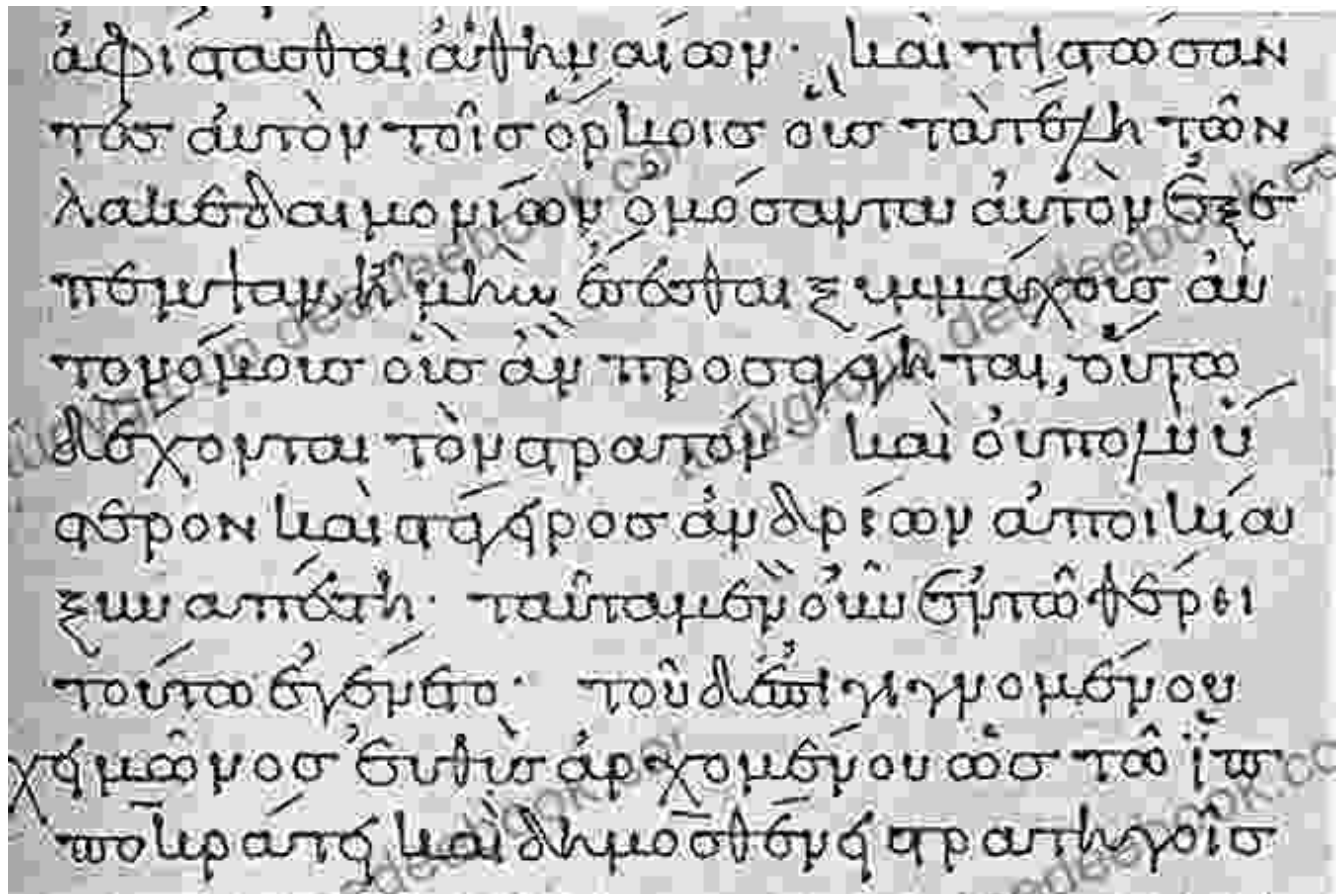 ἀφίστασθαι ἀθηναίων· καὶ πιστώσαν
τές αὐτὸν τοῖς ὅρκοις οὓς τὰ τέλη τῶν
λακεδαιμονίων ὀμόσαντα αὐτὸν ἐξέ
πεμψαν, ἦ μὴν ἔσεσθαι ξυμμάχους αὐ
τονόμους οὓς ἂν προσαγάγηται, οὕτω
δέχονται τὸν στρατόν καὶ οὐ πολὺ ὕ
στερον καὶ στάγειρος ἀνδρίων ἀποικία
ξυναπέστη· ταῦτα μὲν οὖν ἐν τῶ θέρει
τούτω ἐγένετο· τοῦ δ' ἐπιγιγνομένου
χειμῶνος εὐθὺς ἀρχομένου ὡς τῶ ἱπ
ποκράτει καὶ δημοσθένει στρατηγοῖς